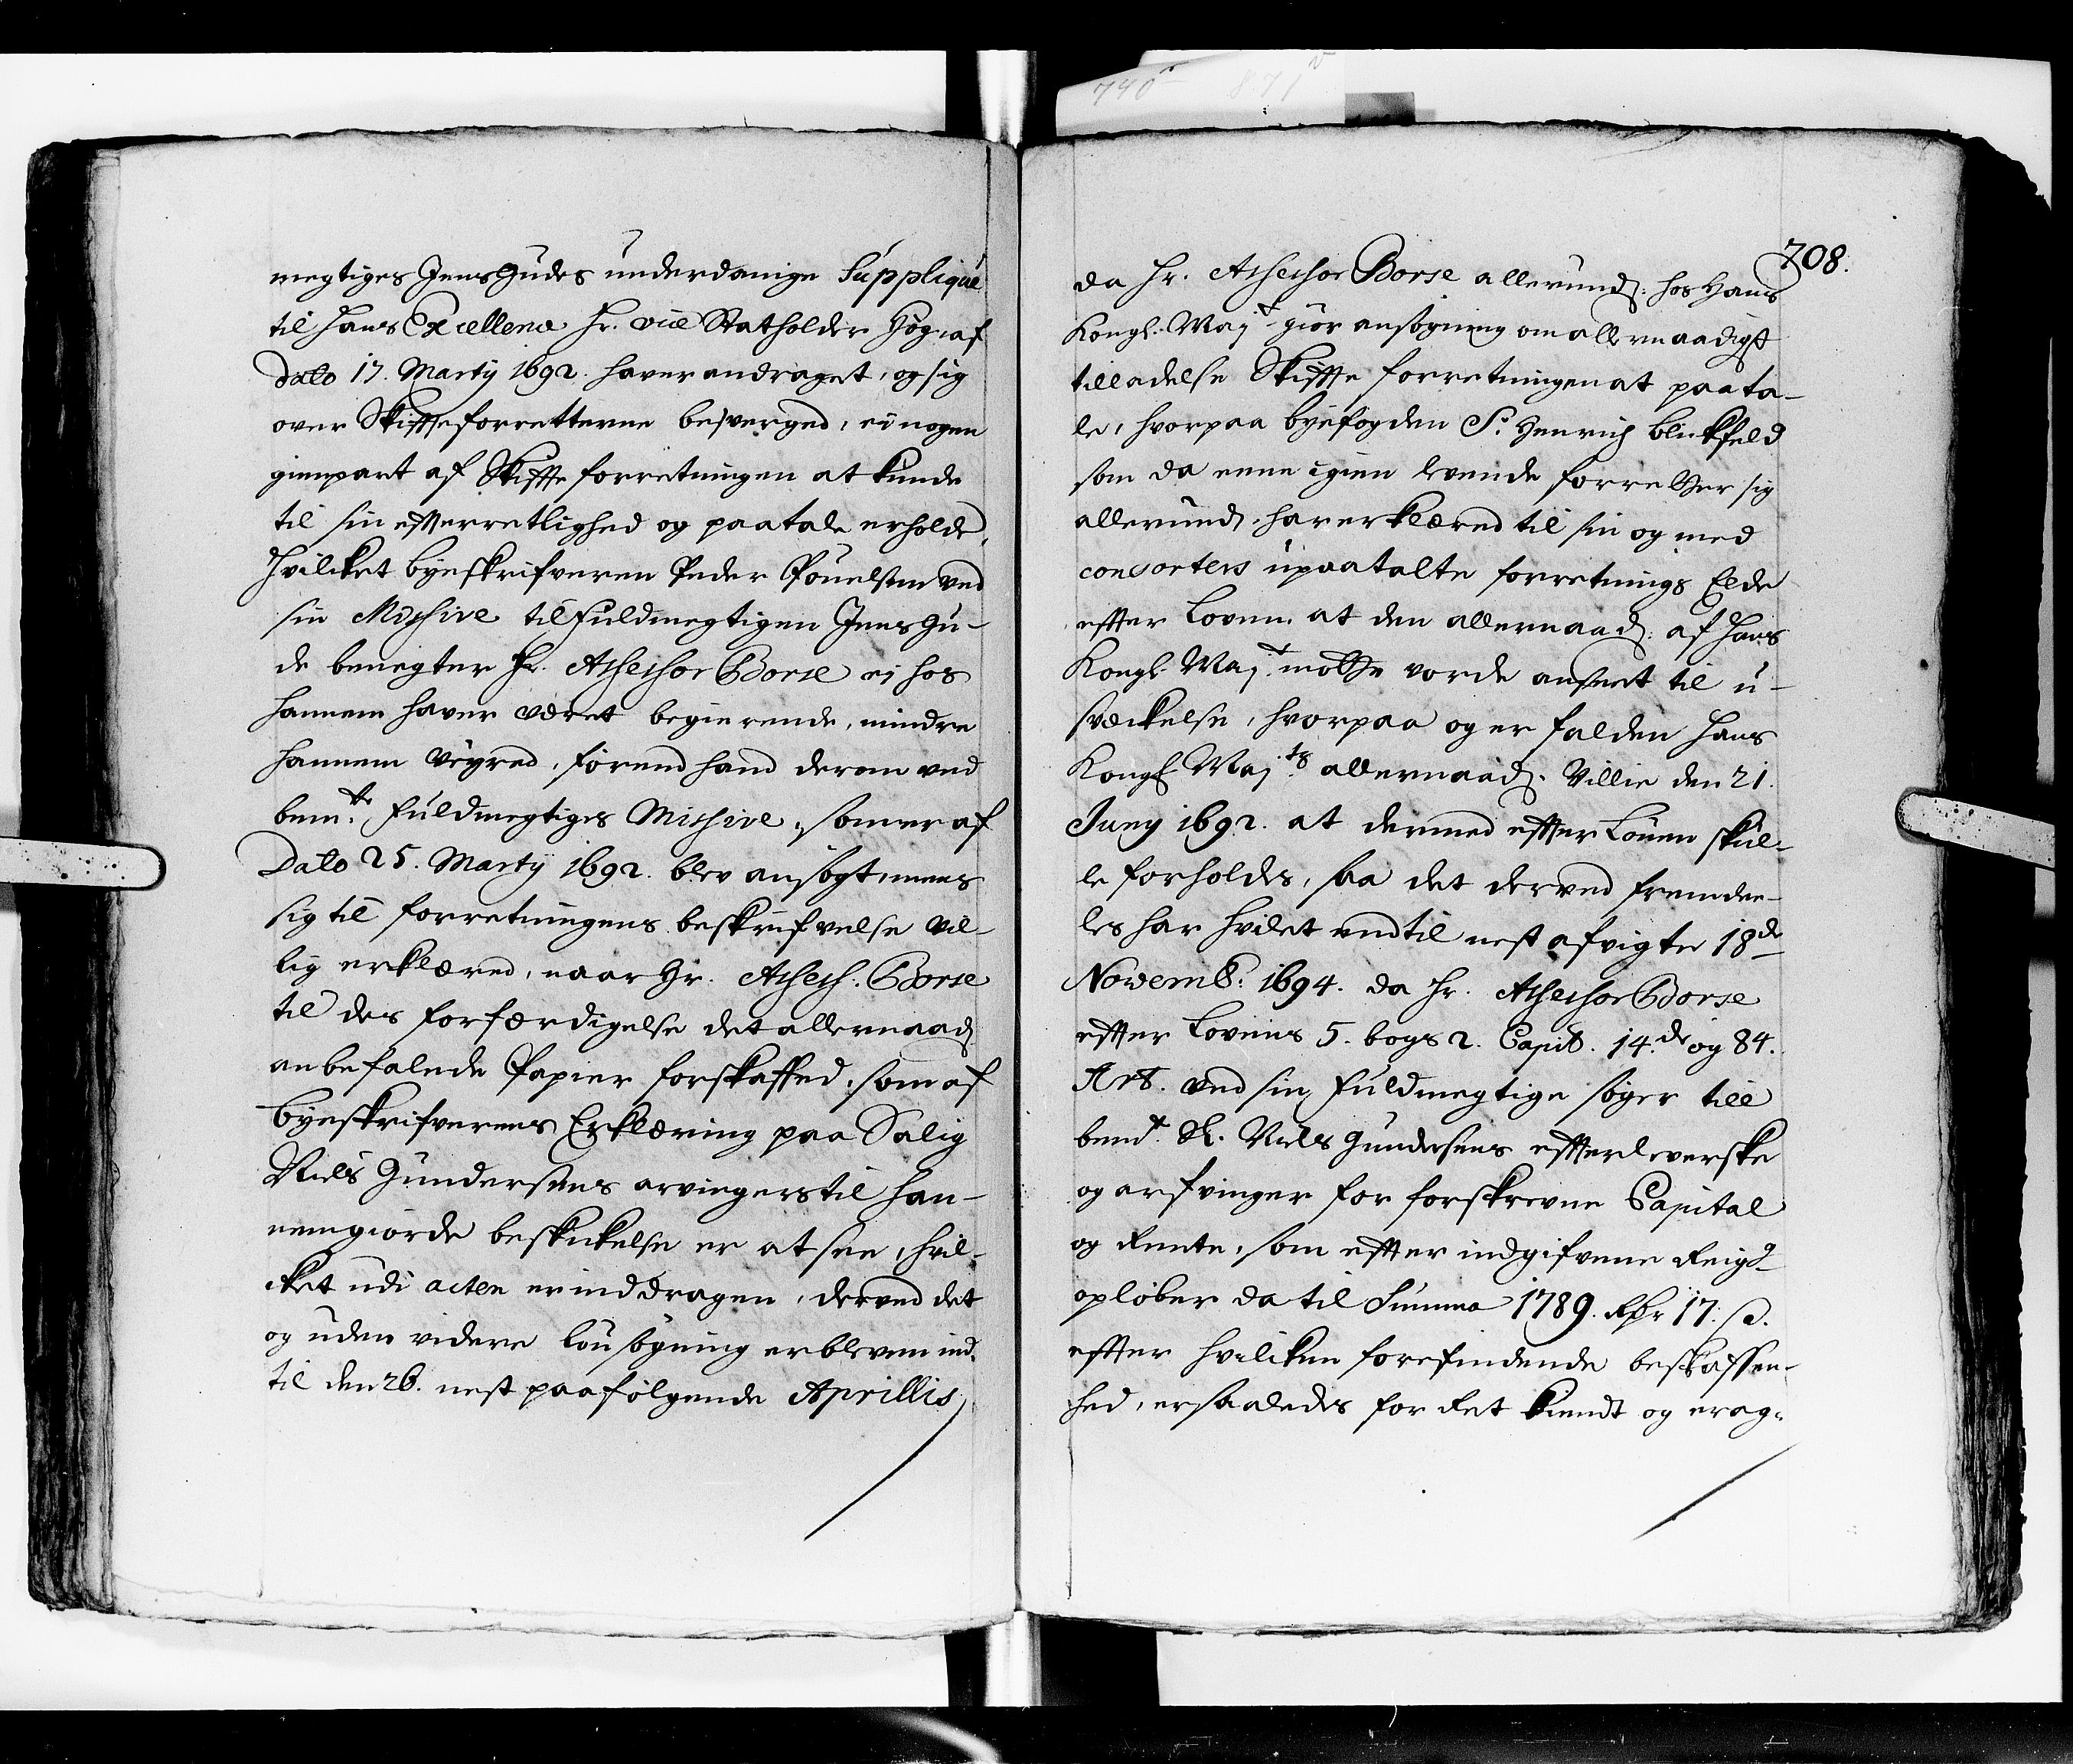 megtiges Jens Gudes underdanige Supplique
til Hans Excellence Hr. vice Statholder Høg af
Dato 17. Marty 1692. haver andraget, og sig
over Skifteforretterne besverged, ei nogen
gienpart af Skifte forretningen at kunde
til sin efterretlighed og paatale erholde,
Hvilcket byeskrifveren Peder Pouelsen ved
sin Missive til fuldmegtigen Jens Gu-
de benegter Hr. Assessor Borse ei hos
hannem haver været begierende, mindre
hannem veyred, førend hand derom ved
bem.te fuldmegtiges Missive, som er af
Dato 25. Marty 1692. blev ansøgt, mens
sig til forretningens beskrifvelse vil-
lig erklæred, naar Hr. Assess. Borse
til des forfærdigelse det allernaad.
anbefalede Papier forskaffed, som af
byeskrifverens Erklæring paa Salig
Niels Gundersøns arvingers til han-
nem giorde beskickelse er at see, hvil-
cket udi acten er inddragen, derved det
og uden videre lou søgning er bleven ind-
til den 26. nest paafølgende Aprillis,
740 r 871 v
708.
da Hr. Assessor Borse allerund. hos Hans
Kongl. May.t giør ansøgning om allernaadigst
tilladelse Skifte forretningen at paata-
le, hvorpaa byefogden Sr. Henrich Blickfeld
som da enne igien levende forretter sig
allerund. har erklæred til sin og med
consorters upaatalte forretnings Elde
efter Loven, at den allernaad. af Hans
Kongl. May.t motte vorde anseet til u-
sveckelse, hvorpaa og er falden Hans
Kongl. May.ts allernaad. Villie den 21.
Juny 1692. at dermed efter Louen skul-
le forholdes, saa det derved fremdee-
les har hvilet indtil nest afvigte 18de
Novemb: 1694. da Hr. Assessor Borse
efter Lovens 5. bogs 2. Capit. 14.de og 84.
Art. ved sin fuldmegtige søger till
bemt. Sl. Niels Gundersens efterleverske
og arfvinger for forskrevne Capital
og Rente, som efter indgifvene Reig.g
opløber da til Summa 1789. Rdr 17: s.
efter hvilcken forefindende beskaffen-
hed, ersaaledes for Ret kiendt og erag-